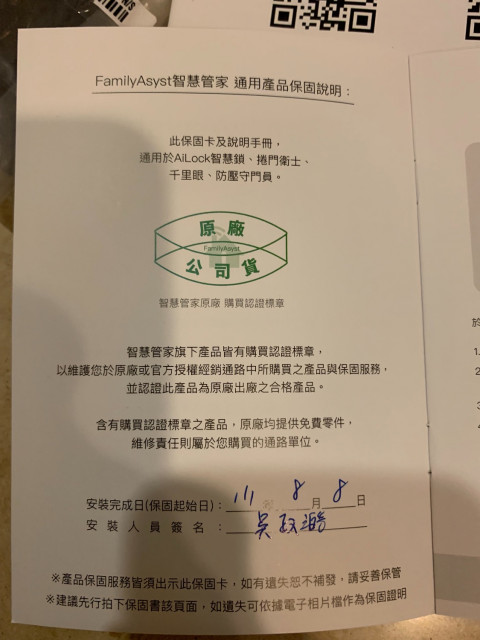 FamilyAsyst智慧管家 通用產品保固說明：
此保固卡及說明手冊，
適用於AiLock智慧鎖、捲門衛士、
千里眼、防壓守門員。
原廠
FamilyAsyst
公司貨
智慧管家原廠 購買認證標章
智慧管家旗下產品皆有購買認證標章，
以維護您於原廠或官方授權經銷通路中所購買之產品與保固服務，
並認證此產品為原廠出廠之合格產品。
含有購買認證標章之產品，原廠均提供免費零件，
維修責任則屬於您購買的通路單位。
安裝完成日(保固起始日)：111年8月8日
安裝人員簽名：吳政
※產品保固服務皆須出示此保固卡，如有遺失恕不補發，請妥善保管
※建議先行拍下保固書該頁面，如遺失可依據電子相片檔作為保固證明